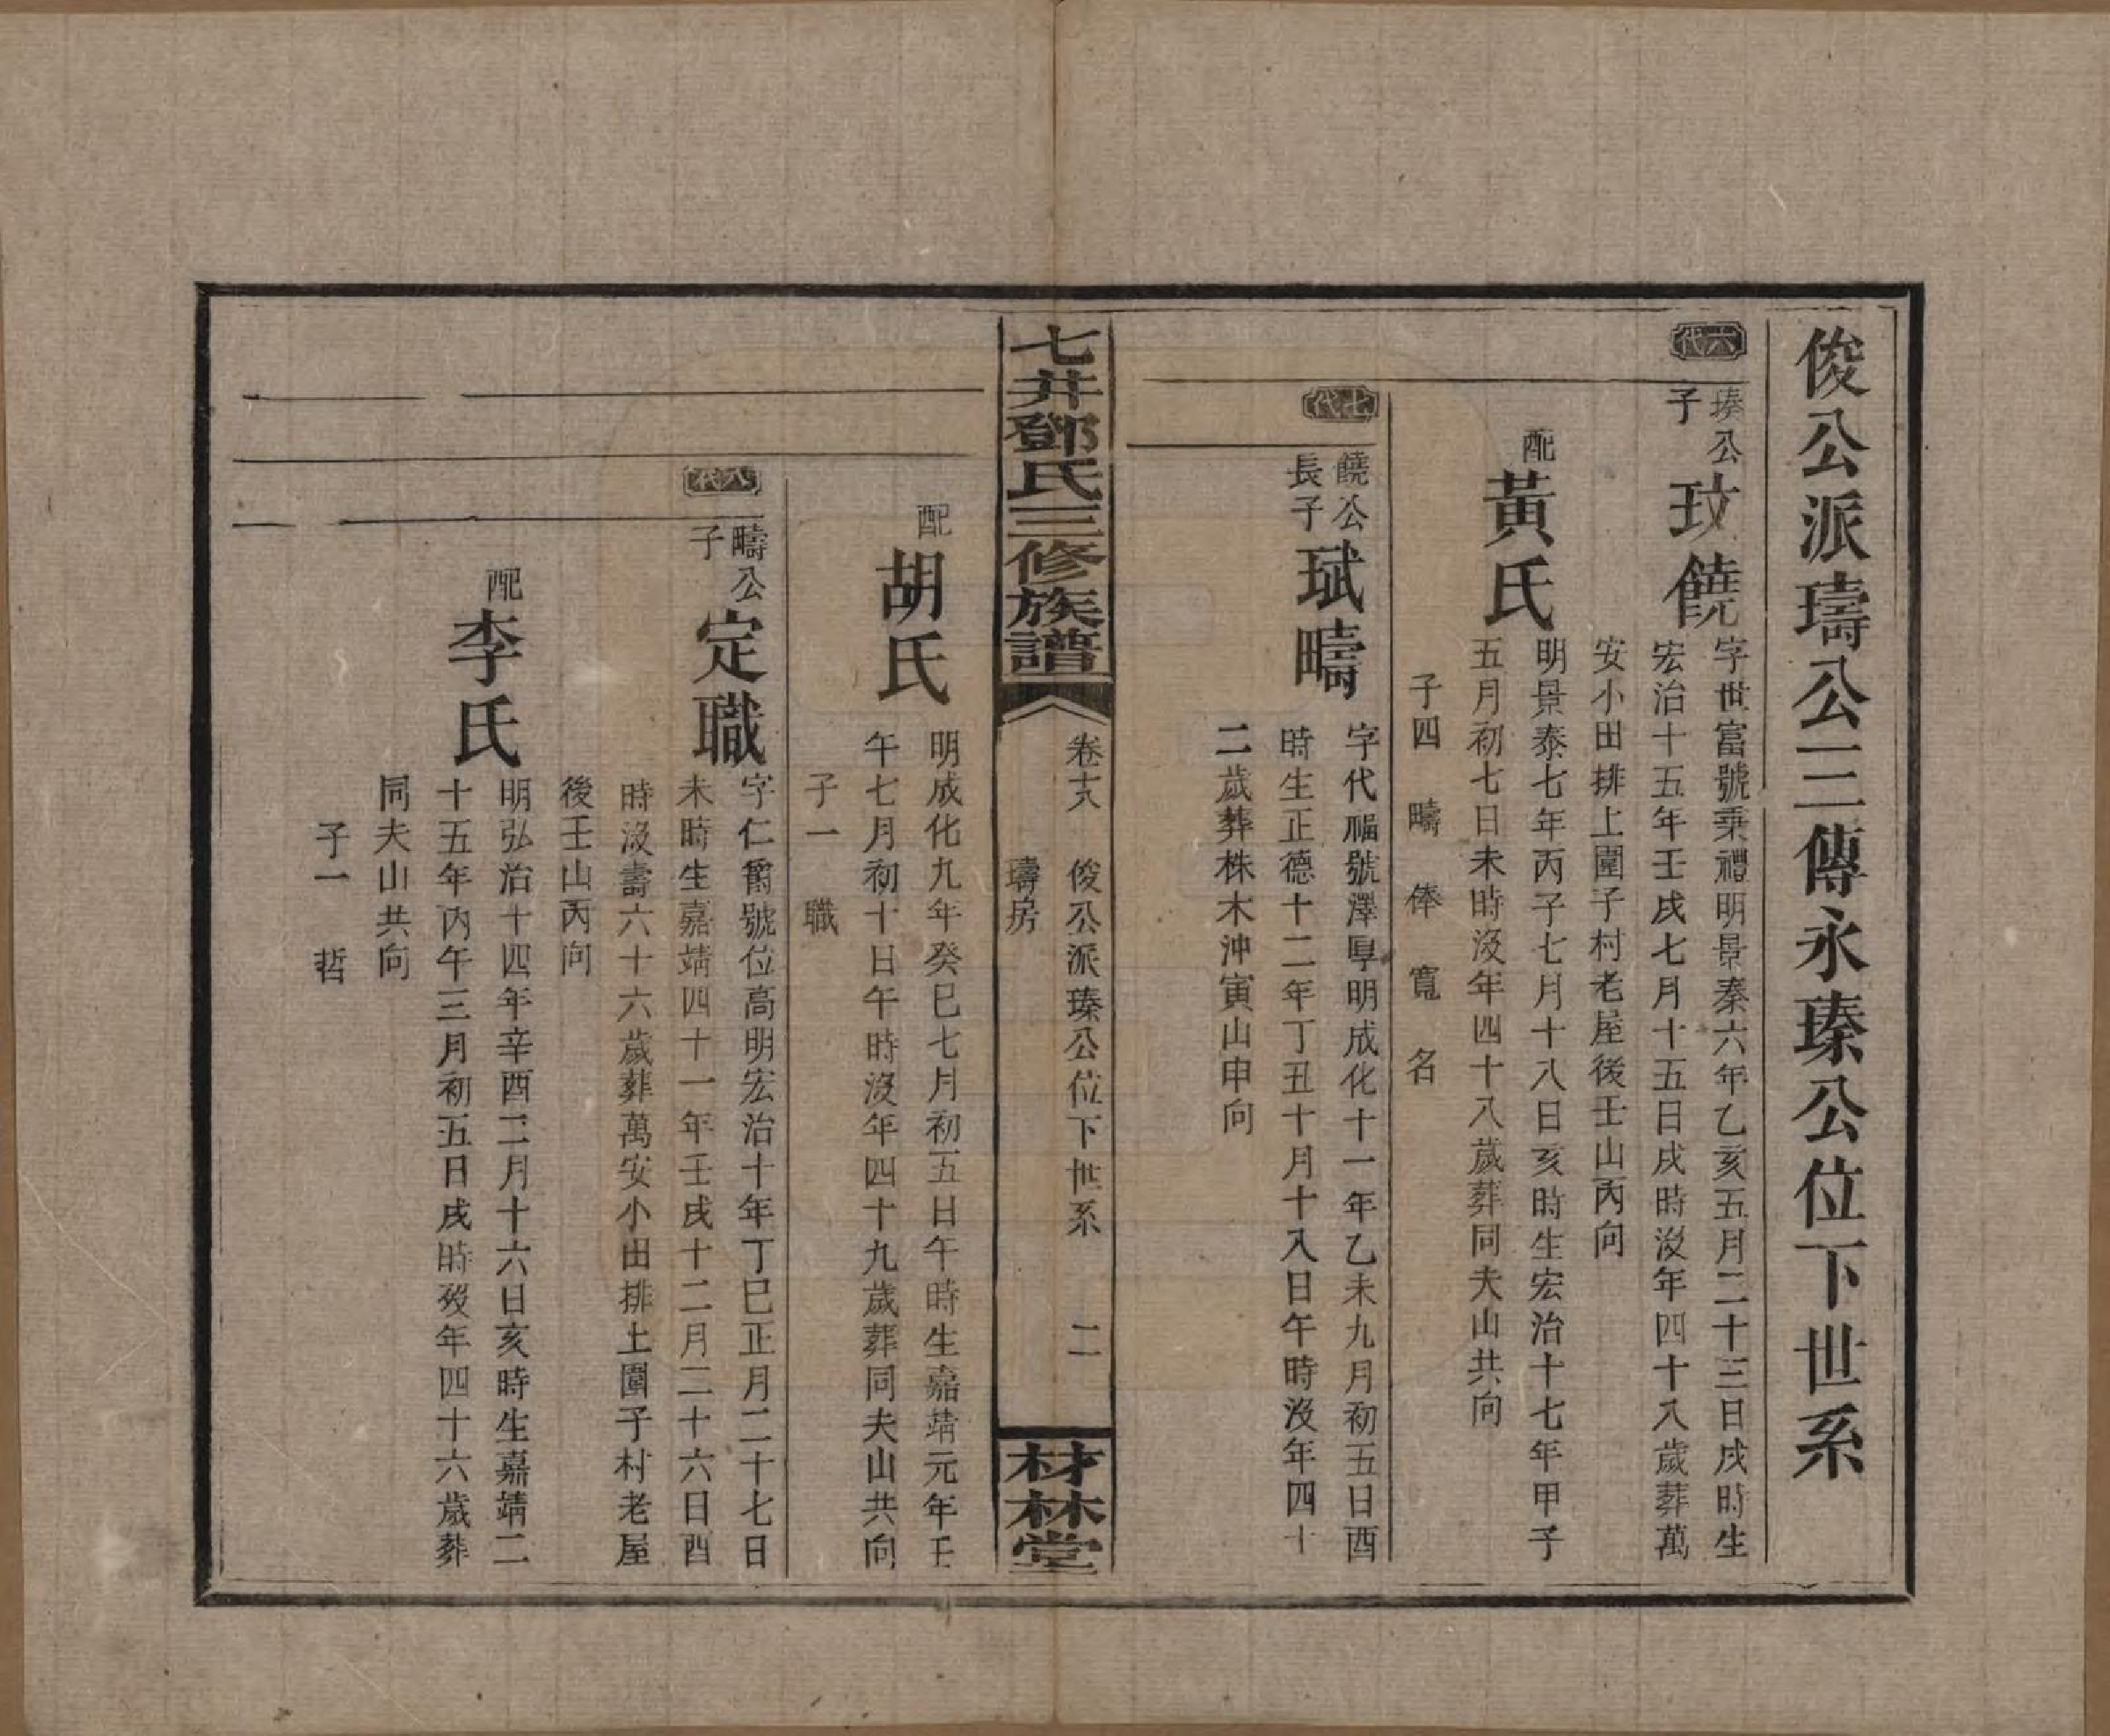 俊公派璹公三傳永瑧公位下世系
六代
瑧公子
玟饒
字世富號乗禮明景泰六年乙亥五月二十三日戌時生
宏治十五年壬戌七月十五日戌時沒年四十八歲葬萬
安小田排上圍子村老屋後壬山丙向
配
黃氏
明景泰七年丙子七月十八日亥時生宏治十七年甲子
五月初七日未時沒年四十八歲葬同夫山共向
子四 疇 俸 寬 名
七代
饒公長子
珷疇
字代福號澤厚明成化十一年乙未九月初五日酉
時生正德十二年丁丑十月十八日午時沒年四十
二歲葬株木沖寅山申向
七井鄧氏三修族譜
卷十六 俊公派瑧公位下世系 二
璹房
材林堂
配
胡氏
明成化九年癸巳七月初五日午時生嘉靖元年壬
午七月初十日午時沒年四十九歲葬同夫山共向
子一 職
八代
疇公子
定職
字仁爵號位高明宏治十年丁巳正月二十七日
未時生嘉靖四十一年壬戌十二月二十六日酉
時沒壽六十六歲葬萬安小田排上圍子村老屋
後壬山丙向
配
李氏
明弘治十四年辛酉二月十六日亥時生嘉靖二
十五年丙午三月初五日戌時歿年四十六歲葬
同夫山共向
子一 哲